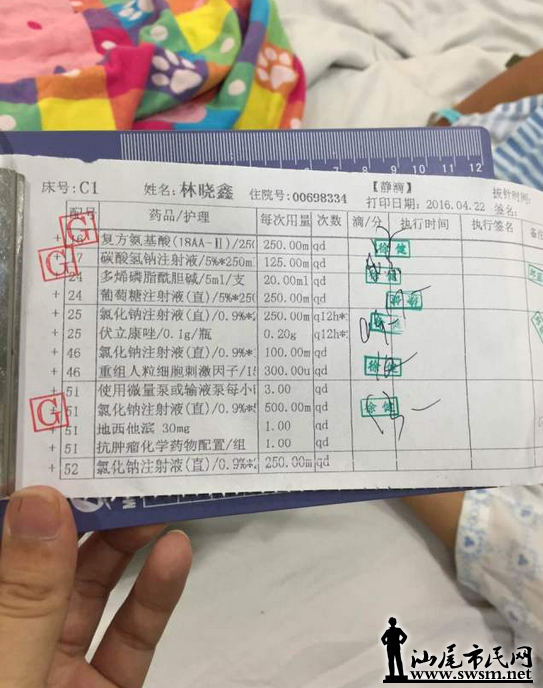 5 6 7 8 9 10 11 12
床号:C1 姓名:林晓鑫 住院号:00698334 【静滴】 拔针时间:
打印日期:2016.04.22 签名:
配号 药品/护理 每次用量 次数 滴/分 执行时间 执行签名 备注
+ G 16 复方氨基酸(18AA-Ⅱ)/250 250.00m qd 徐健
+ G 17 碳酸氢钠注射液/5%*250m 125.00m qd
+ 24 多烯磷脂酰胆碱/5ml/支 20.00ml qd 徐健
+ 24 葡萄糖注射液(直)/5%*250 250.00m qd 徐健
+ 25 氯化钠注射液(直)/0.9%* 250.00m q12h*
+ 25 伏立康唑/0.1g/瓶 0.20g q12h*
+ 46 氯化钠注射液(直)/0.9%* 100.00m qd
+ 46 重组人粒细胞刺激因子/15 300.00u qd 徐健
+ 51 使用微量泵或输液泵每小时 3.00 qd
+ G 51 氯化钠注射液(直)/0.9%* 500.00m qd 徐健
+ 51 地西他滨 30mg 1.00 qd
+ 51 抗肿瘤化学药物配置/组 1.00 qd
+ 52 氯化钠注射液(直)/0.9%* 250.00m qd
汕尾市民网
www.swsm.net